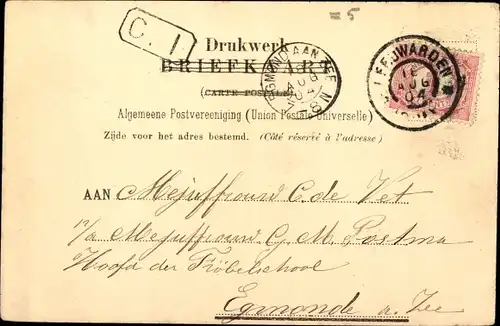 = 5
C. 1
Drukwerk
BRIEFKAART
(CARTE POSTALE)
Algemeene Postvereeniging (Union Postale Universelle)
Zijde voor het adres bestemd. (Côté réservé à l'adresse)
EGMOND AAN ZEE
LEEUWARDEN
16
AUG
04
AAN Mejuffrouw C. de Vet
p/a Mejuffrouw G. M. Postma
Hoofd der Fröbelschool
Egmonde a. Zee